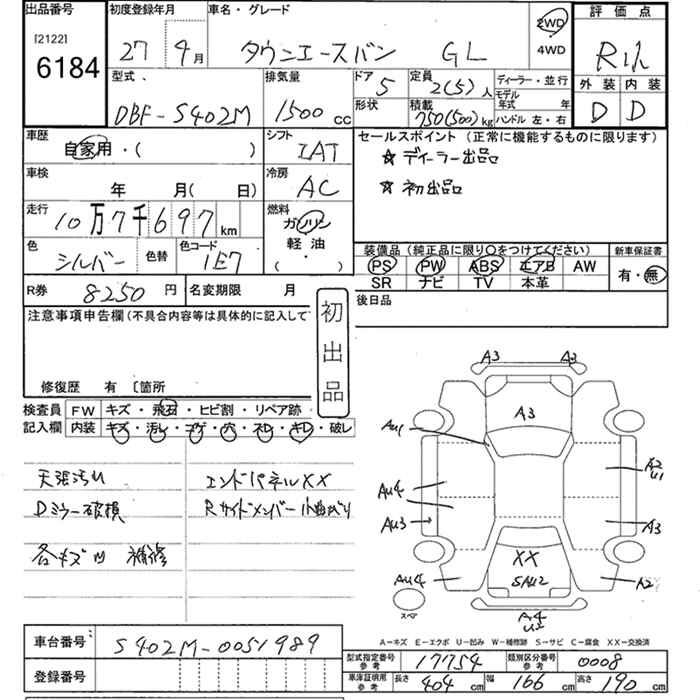 出品番号
[2122]
6184
初度登録年月
27 9月
車名・グレード
タウンエースバン GL
2WD
4WD
評価点
外装 内装
D D
型式
DBF-S402M
排気量
1500 cc
ドア
5
形状
定員
2(5)人
積載
750(500)kg
ディーラー・並行
モデル
年式 年
ハンドル 左・右
車歴
自家用・( )
シフト
IAT
セールスポイント(正常に機能するものに限ります)
☆ ディーラー出品
☆ 初出品
車検
年 月( 日)
冷房
AC
走行
10万7千697km
燃料
ガソリン
軽油
( )
色
シルバー
色替
色コード
1E7
装備品(純正品に限り○をつけてください)
PS PW ABS エアB AW
SR ナビ TV 本革
新車保証書
有・無
R券
8250円
名変期限 月
後日品
注意事項申告欄(不具合内容等は具体的に記入して
初出品
修復歴 有 〔箇所
検査員
記入欄
FW キズ・飛石・ヒビ割・リペア跡・
内装 キズ・汚レ・コゲ・穴・スレ・キレ・破レ
天張汚れ
エンドパネルXX
Dミラー破損
Rサイドメンバー小曲がり
各キズ凹 補修
A3 A3
A3
AU1
A2
U1
AU4
AU3
A3
XX
SAU2
AU4
A2
スペア
A4
U2
A-キズ E-エクボ U-凹み W-補修跡 S-サビ C-腐食 XX-交換済
車台番号
S402M-0051989
登録番号
型式指定番号
参考
17754
類別区分番号
参考
0008
車庫証明用
参考
長さ 404 cm
幅 166 cm
高さ 190 cm